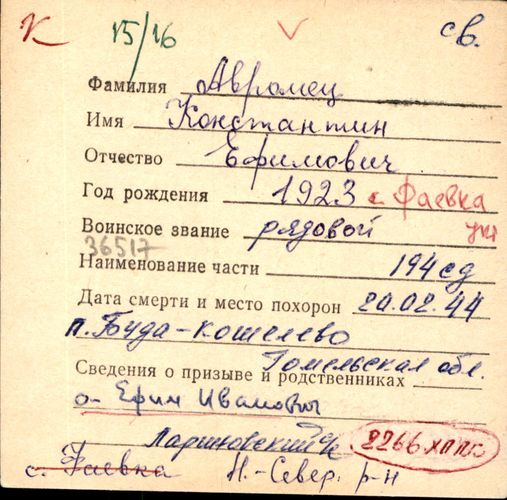 К 15/16 св.
Фамилия Авромец
Имя Константин
Отчество Ефимович
Год рождения 1923 с. Фаевка
Воинское звание рядовой
36517
Наименование части 194 сд
Дата смерти и место похорон 20.02.44
п. Буда-кошелево
Гомельская обл.
Сведения о призыве и родственниках
о- Ефим Иванович
Лариновский с/с
с. Фаевка Н.-Север. р-н